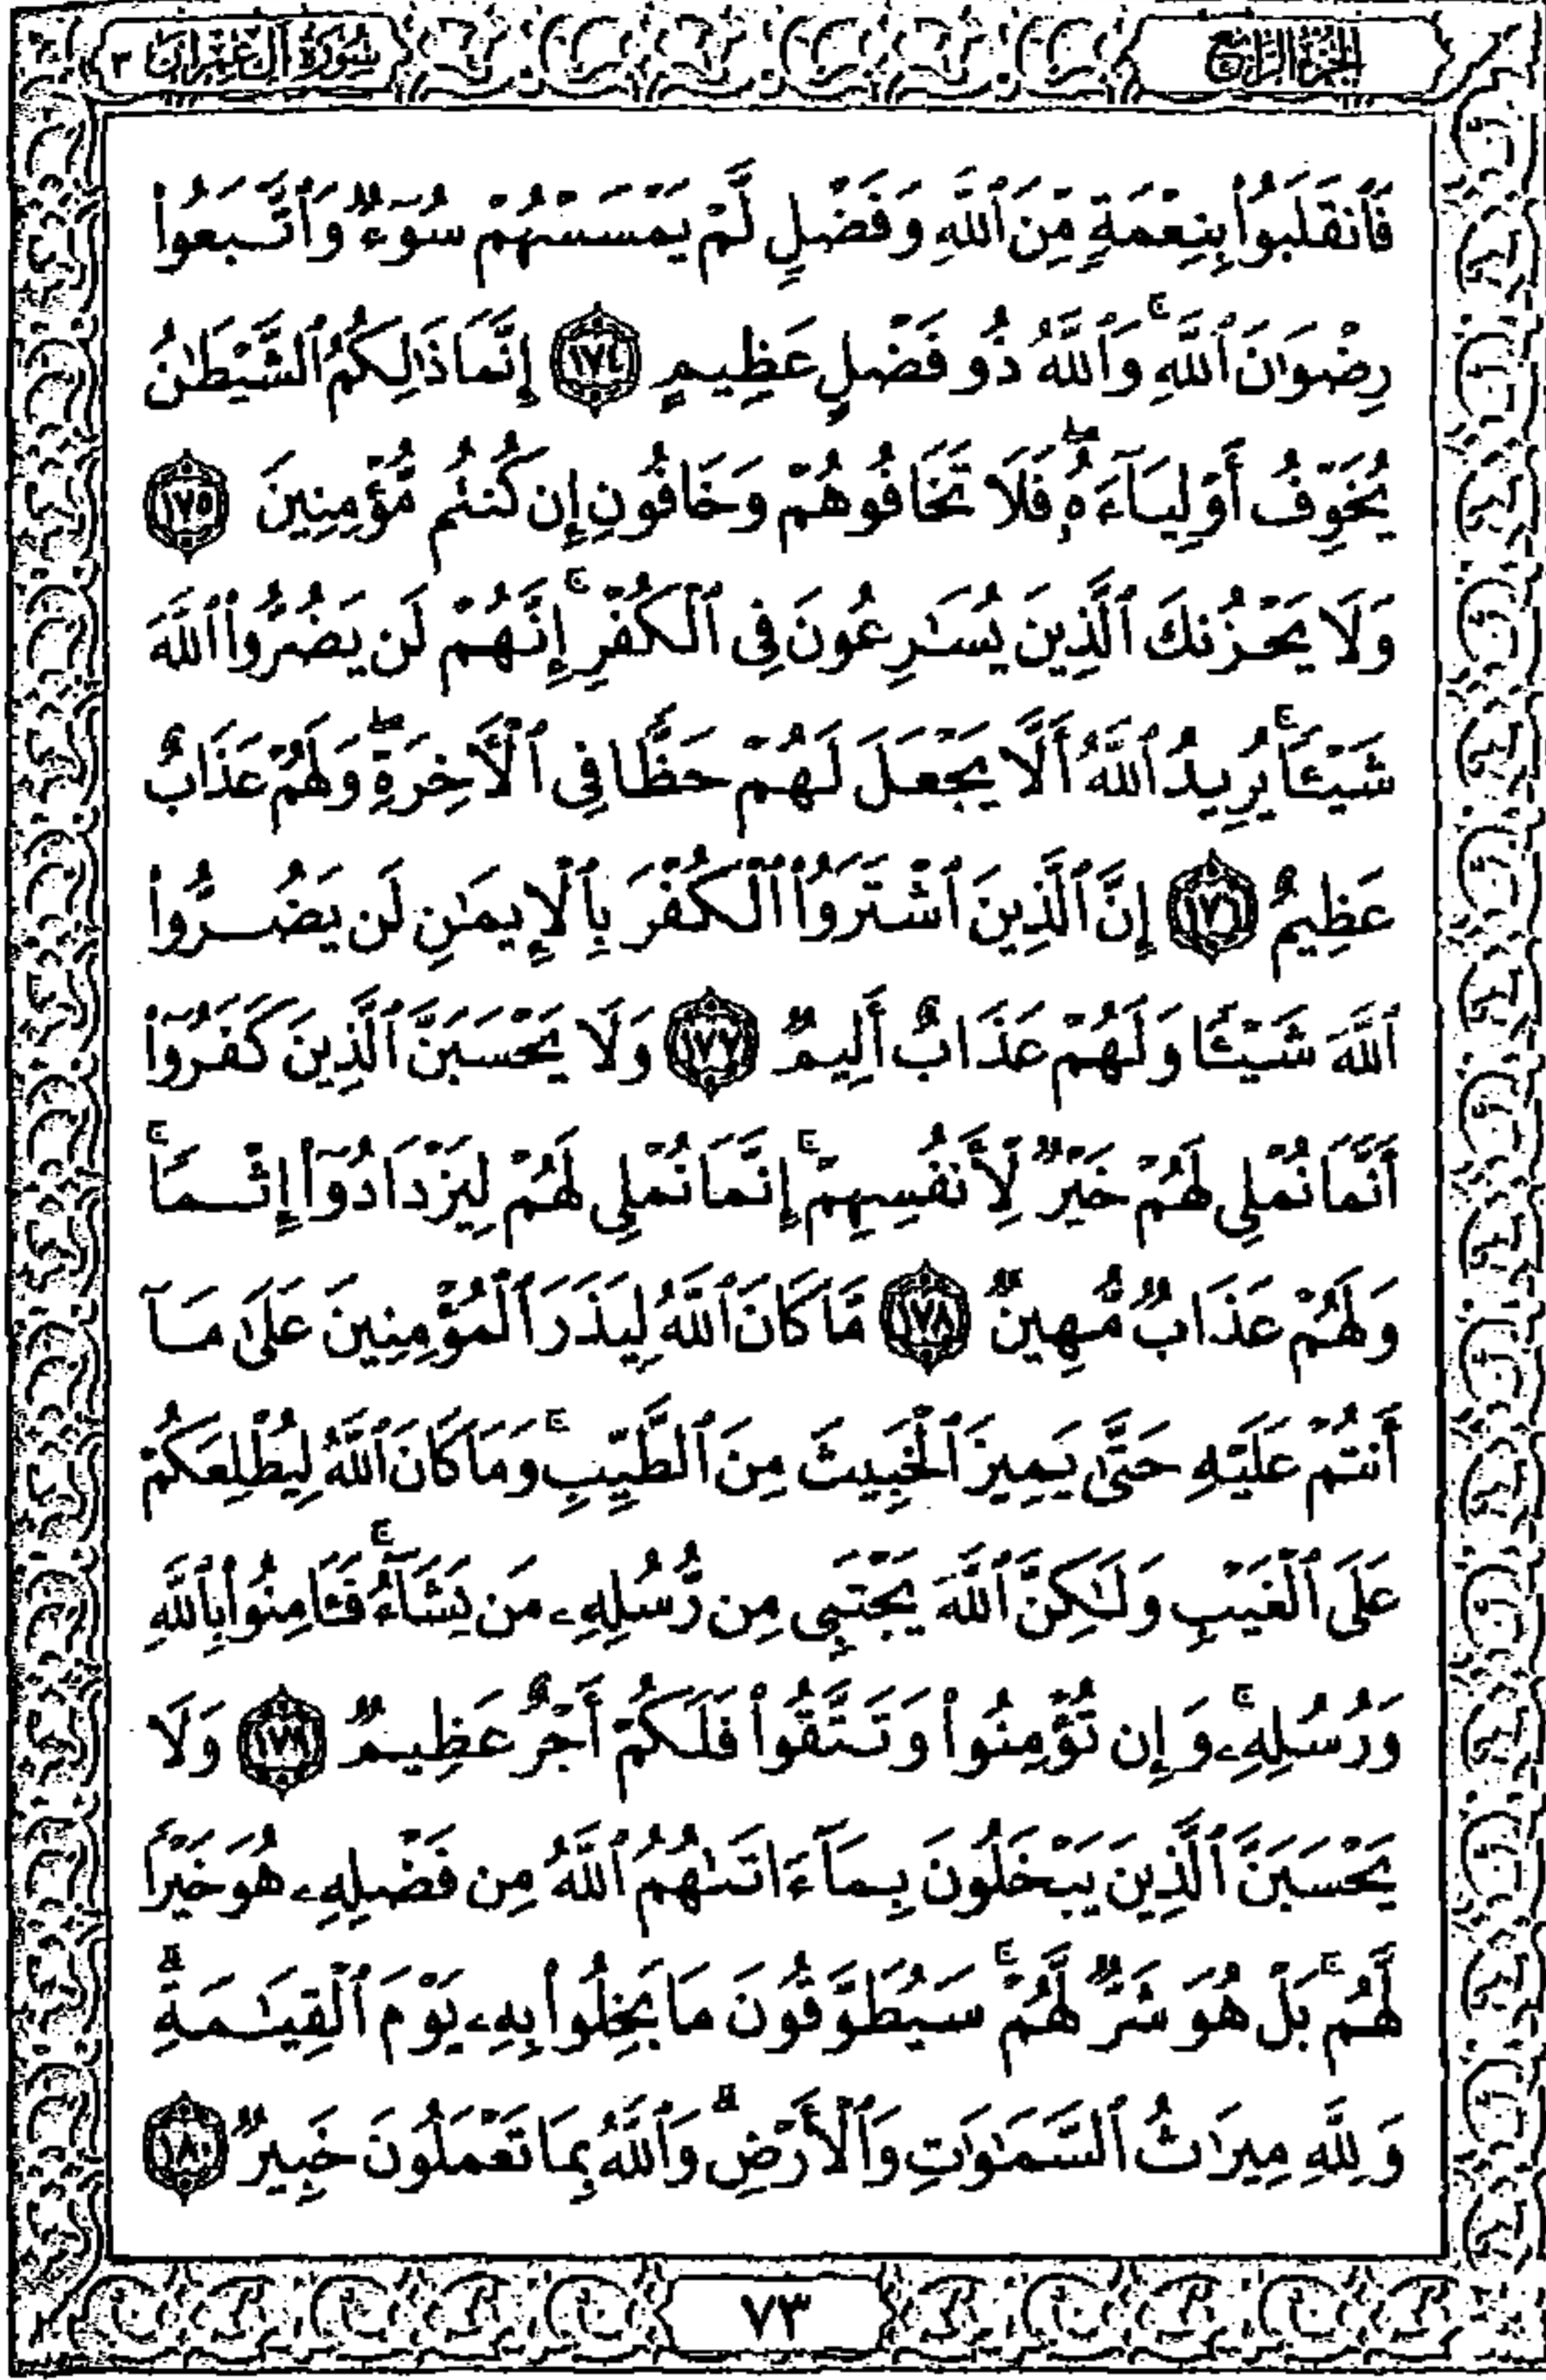 الجزء الرابع
سورة آل عمران ٣
فَٱنقَلَبُوا۟ بِنِعْمَةٍ مِّنَ ٱللَّهِ وَفَضْلٍ لَّمْ يَمْسَسْهُمْ سُوٓءٌ وَٱتَّبَعُوا۟
رِضْوَٰنَ ٱللَّهِ ۗ وَٱللَّهُ ذُو فَضْلٍ عَظِيمٍ ١٧٤ إِنَّمَا ذَٰلِكُمُ ٱلشَّيْطَٰنُ
يُخَوِّفُ أَوْلِيَآءَهُۥ ۖ فَلَا تَخَافُوهُمْ وَخَافُونِ إِن كُنتُم مُّؤْمِنِينَ ١٧٥
وَلَا يَحْزُنكَ ٱلَّذِينَ يُسَٰرِعُونَ فِى ٱلْكُفْرِ ۚ إِنَّهُمْ لَن يَضُرُّوا۟ ٱللَّهَ
شَيْـًٔا ۚ يُرِيدُ ٱللَّهُ أَلَّا يَجْعَلَ لَهُمْ حَظًّا فِى ٱلْـَٔاخِرَةِ ۖ وَلَهُمْ عَذَابٌ
عَظِيمٌ ١٧٦ إِنَّ ٱلَّذِينَ ٱشْتَرَوُا۟ ٱلْكُفْرَ بِٱلْإِيمَٰنِ لَن يَضُرُّوا۟
ٱللَّهَ شَيْـًٔا وَلَهُمْ عَذَابٌ أَلِيمٌ ١٧٧ وَلَا يَحْسَبَنَّ ٱلَّذِينَ كَفَرُوٓا۟
أَنَّمَا نُمْلِى لَهُمْ خَيْرٌ لِّأَنفُسِهِمْ ۚ إِنَّمَا نُمْلِى لَهُمْ لِيَزْدَادُوٓا۟ إِثْمًا ۚ
وَلَهُمْ عَذَابٌ مُّهِينٌ ١٧٨ مَّا كَانَ ٱللَّهُ لِيَذَرَ ٱلْمُؤْمِنِينَ عَلَىٰ مَآ
أَنتُمْ عَلَيْهِ حَتَّىٰ يَمِيزَ ٱلْخَبِيثَ مِنَ ٱلطَّيِّبِ ۗ وَمَا كَانَ ٱللَّهُ لِيُطْلِعَكُمْ
عَلَى ٱلْغَيْبِ وَلَٰكِنَّ ٱللَّهَ يَجْتَبِى مِن رُّسُلِهِۦ مَن يَشَآءُ ۖ فَـَٔامِنُوا۟ بِٱللَّهِ
وَرُسُلِهِۦ ۚ وَإِن تُؤْمِنُوا۟ وَتَتَّقُوا۟ فَلَكُمْ أَجْرٌ عَظِيمٌ ١٧٩ وَلَا
يَحْسَبَنَّ ٱلَّذِينَ يَبْخَلُونَ بِمَآ ءَاتَىٰهُمُ ٱللَّهُ مِن فَضْلِهِۦ هُوَ خَيْرًا
لَّهُم ۖ بَلْ هُوَ شَرٌّ لَّهُمْ ۖ سَيُطَوَّقُونَ مَا بَخِلُوا۟ بِهِۦ يَوْمَ ٱلْقِيَٰمَةِ ۗ
وَلِلَّهِ مِيرَٰثُ ٱلسَّمَٰوَٰتِ وَٱلْأَرْضِ ۗ وَٱللَّهُ بِمَا تَعْمَلُونَ خَبِيرٌ ١٨٠
٧٣